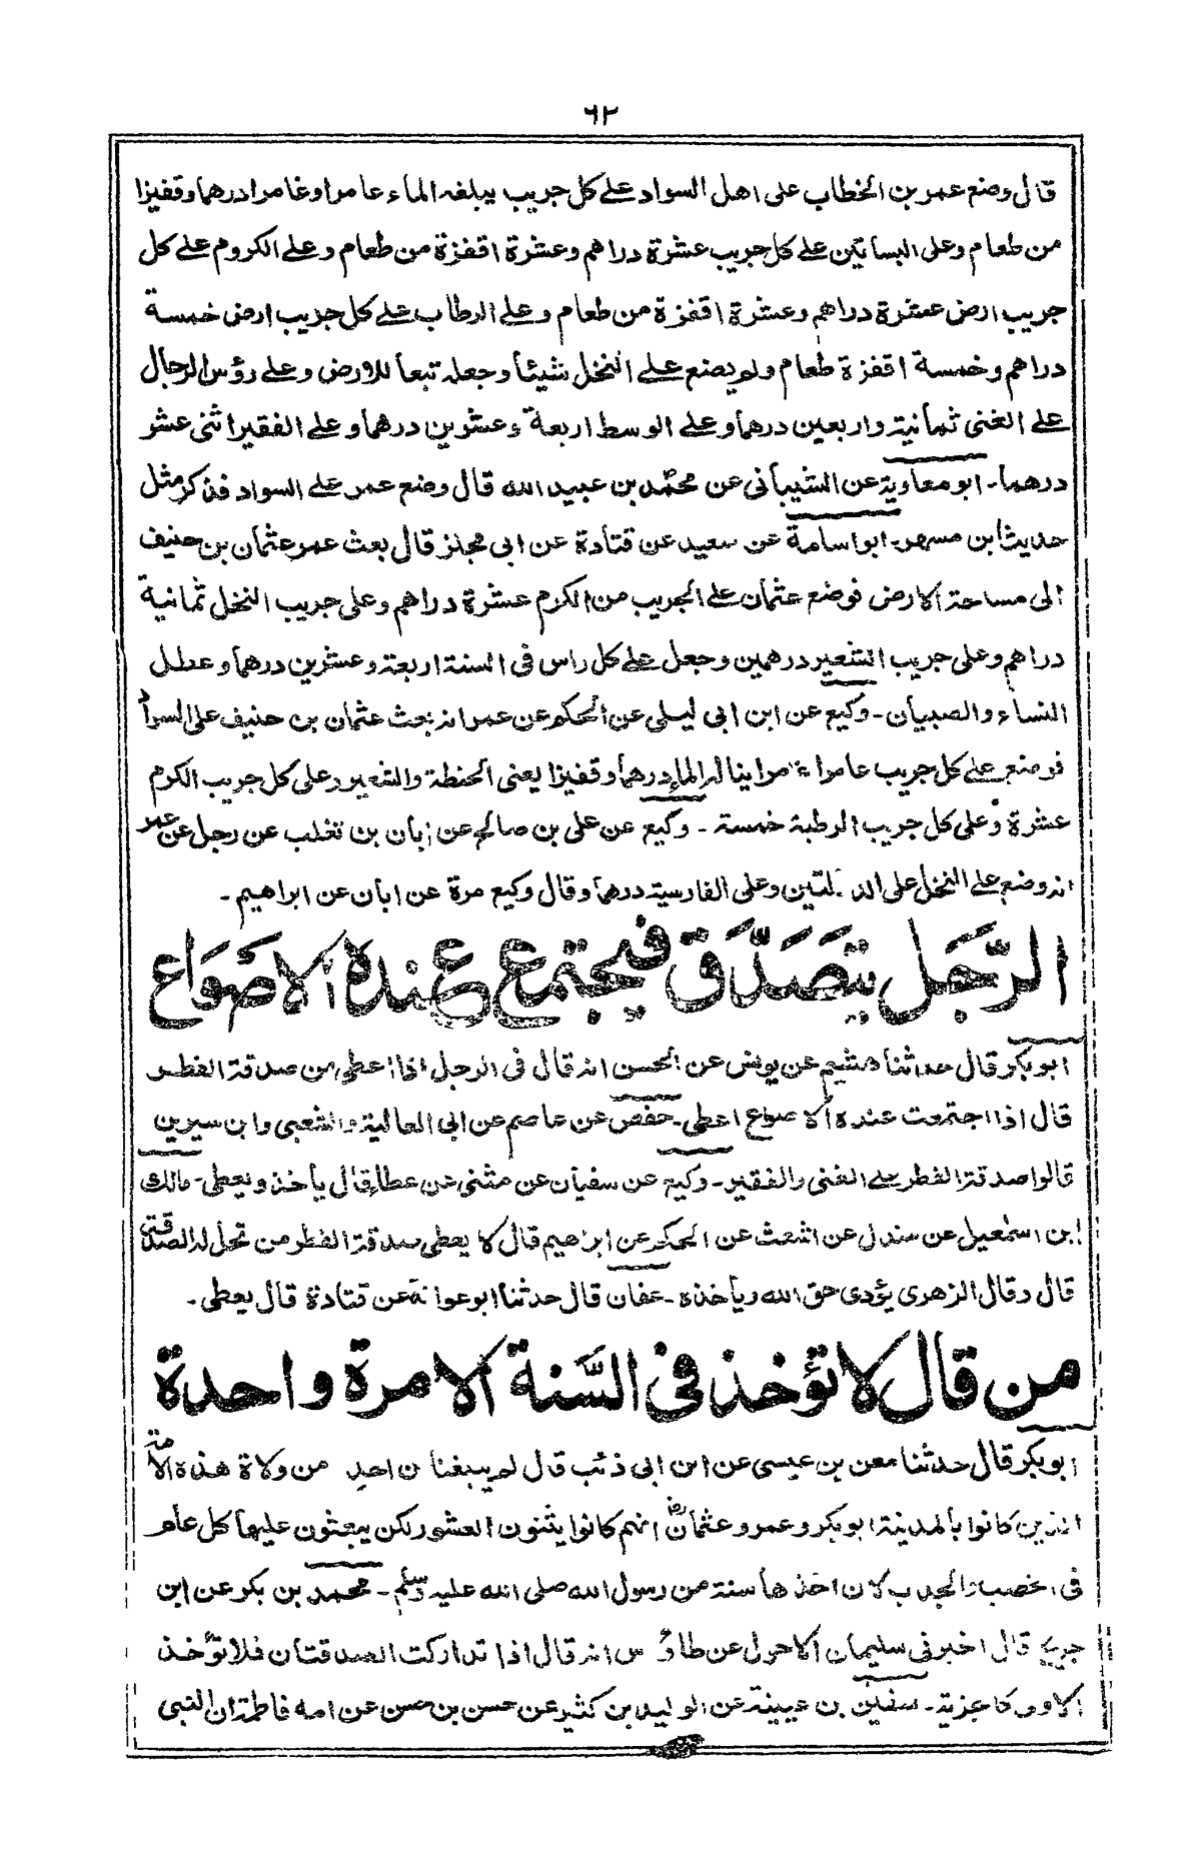 ٦٢
قال وضع عمر بن الخطاب على اهل السواد على كل جريب يبلغه الماء عامرا وغامرا درهما وقفيزا
من طعام وعلى البساتين على كل جريب عشرة دراهم وعشرة اقفزة من طعام وعلى الكروم على كل
جريب ارض عشرة دراهم وعشرة اقفزة من طعام وعلى الرطاب على كل جريب ارض خمسة
دراهم وخمسة اقفزة طعام ولم يضع على النخل شيئا وجعله تبعا للارض وعلى رؤس الرجال
على الغنى ثمانية واربعين درهما وعلى الوسط اربعة وعشرين درهما وعلى الفقير اثنى عشر
درهما۔ ابو معاوية عن الشيبانى عن محمد بن عبيد الله قال وضع عمر على السواد فذكر مثل
حديث ابن مسهر۔ ابو اسامة عن سعيد عن قتادة عن ابى مجلز قال بعث عمر عثمان بن حنيف
الى مساحة الارض فوضع عثمان على الجريب من الكرم عشرة دراهم وعلى جريب النخل ثمانية
دراهم وعلى جريب الشعير درهمين وجعل على كل راس فى السنة اربعة وعشرين درهما وعطل
النساء والصبيان۔ وكيع عن ابن ابى ليلى عن الحكم عن عمر انه بعث عثمان بن حنيف على السواد
فوضع على كل جريب عامر او غامر اينا له الماء درهما وقفيزا يعنى الحنطة والشعير وعلى كل جريب الكرم
عشرة وعلى كل جريب الرطبة خمسة ۔ وكيع عن على بن صالح عن زبان بن تغلب عن رجل عن عمر
انه وضع على النخل على الدقلتين وعلى الفارسية درهما وقال وكيع مرة عن ابان عن ابراهيم۔
الرَّجَل يتَصَدَّق فيجتمع عنده الاصْوَاع
ابو بكر قال حدثنا هشيم عن يونس عن الحسن انه قال فى الرجل اذا اعطى من صدقة الفطر
قال اذا اجتمعت عنده الاصواع اعطى۔ حفص عن عاصم عن ابى العالية والشعبى وابن سيرين
قالوا صدقة الفطر على الغنى والفقير۔ وكيع عن سفيان عن مثنى عن عطاء قال ياخذ ويعطى۔ مالك
ابن اسمعيل عن سندل عن اشعث عن الحكم عن ابراهيم قال لا يعطى صدقة الفطر من تحل له الصدقة
قال وقال الزهرى يؤدى حق الله وياخذه ۔ عفان قال حدثنا ابو عوانة عن قتادة قال يعطى۔
من قال لا تؤخذ فى السَّنة الا مرة واحدة
ابو بكر قال حدثنا معن بن عيسى عن ابن ابى ذئب قال لم يبلغنا ان احد من ولاة هذه الامة
الذين كانوا بالمدينة ابو بكر وعمر وعثمان انهم كانوا يثنون العشور لكن يبعثون عليها كل عام
فى الخصب والجدب لان اخذها سنة من رسول الله صلى الله عليه وسلم۔ محمد بن بكر عن ابن
جريج قال اخبرنى سليمان الاحول عن طاؤس انه قال اذا تداركت الصدقتان فلا تؤخذ
الاولى كالجزية۔ سفين بن عيينة عن الوليد بن كثير عن حسن بن حسن عن امه فاطمة ان النبى